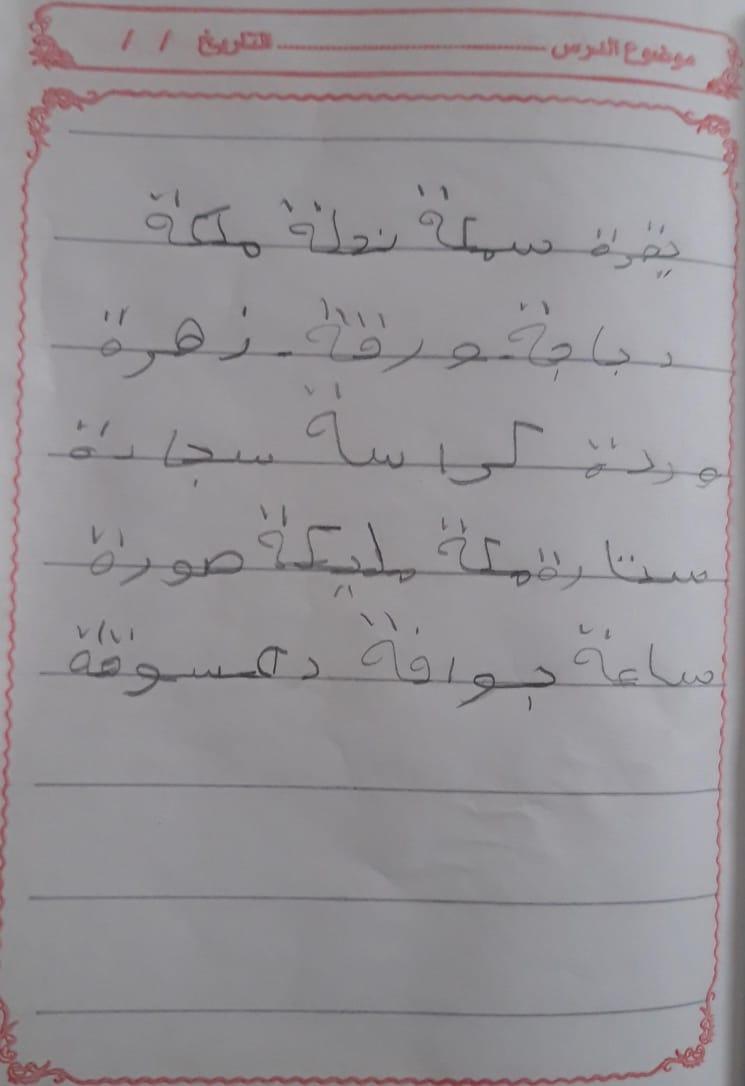 موضوع الدرس ........................ التاريخ / /
بقرة سمكة نحلة ملكة
دجاجة - ورقة - زهرة
وردة كراسة سجادة
ستارة مكة مليكة صورة
ساعة جوافة دعسوقة